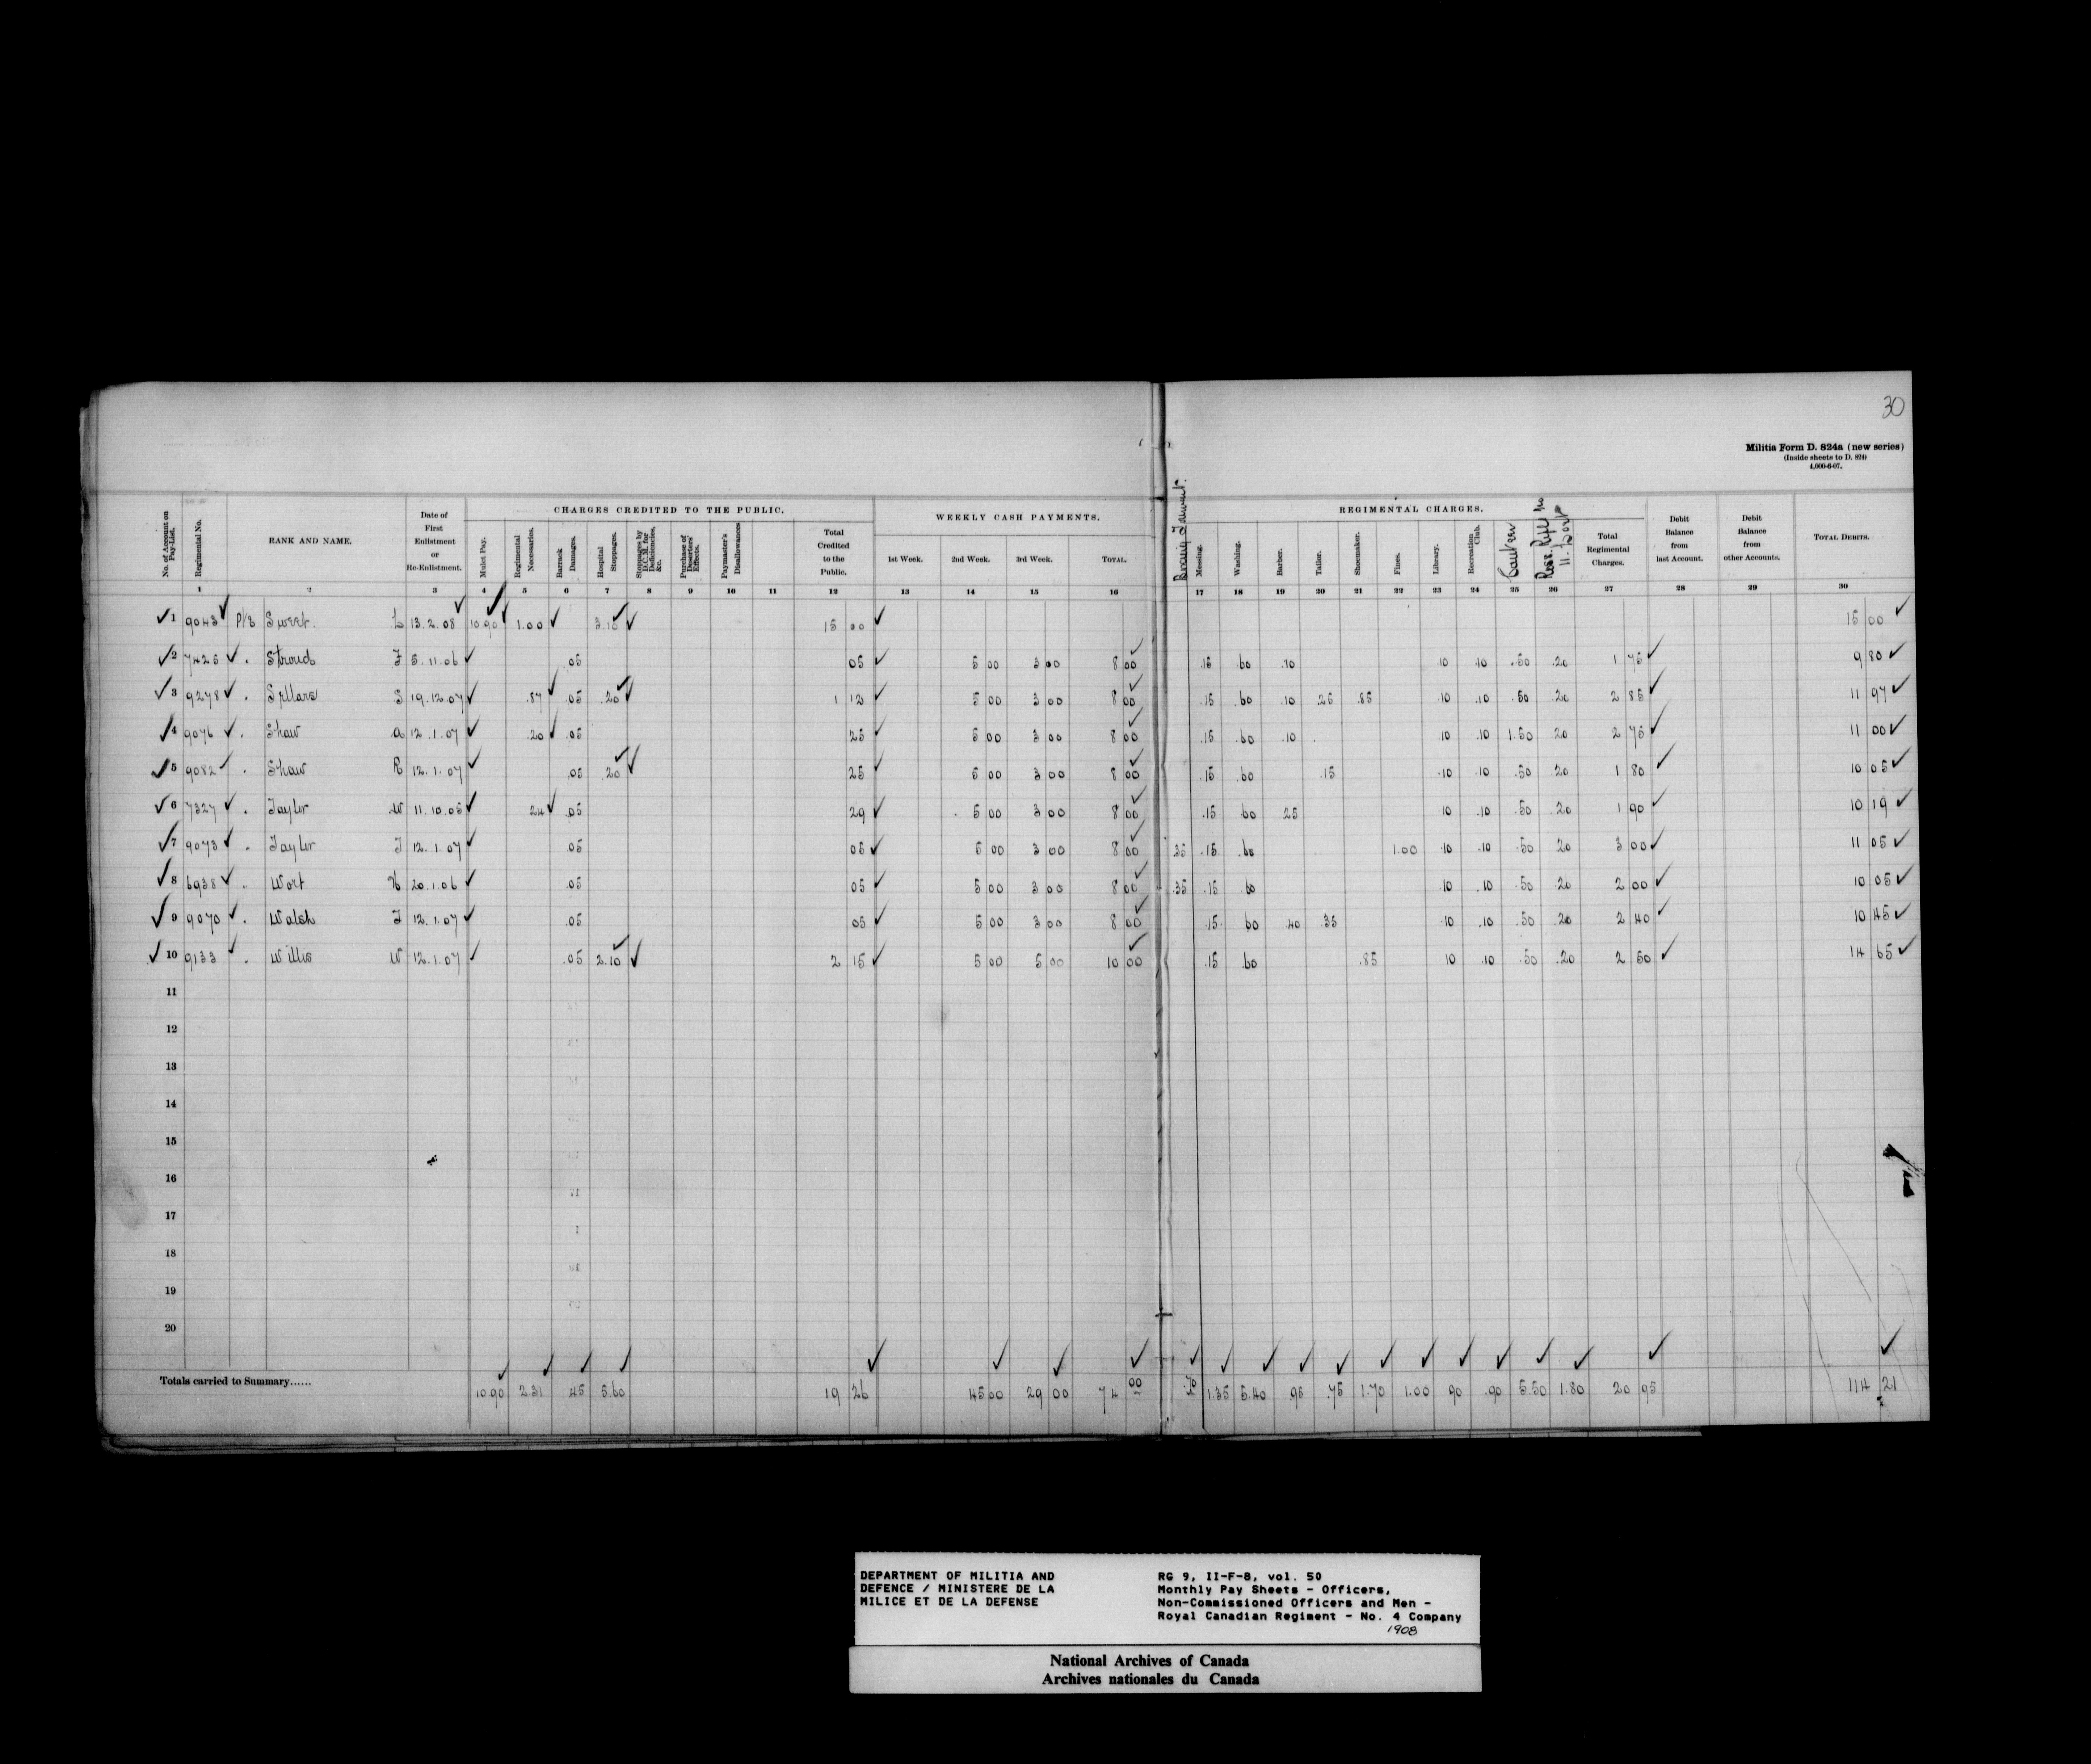 30
Militia Form D. 824a (new series)
(Inside sheets to D. 824)
4,000-6-07.
CHARGES CREDITED TO THE PUBLIC. WEEKLY CASH PAYMENTS. REGIMENTAL CHARGES.
No. of Account on Pay-List. Regimental No. RANK AND NAME. Date of First Enlistment or Re-Enlistment. Mulct Pay. Regimental Necessaries. Barrack Damages. Hospital Stoppages. Stoppages by D.C.M. for Deficiencies, &c. Purchase of Deserters' Effects. Paymaster's Disallowances Total Credited to the Public. 1st Week. 2nd Week. 3rd Week. TOTAL. Messing. Washing. Barber. Tailor. Shoemaker. Fines. Library. Recreation Club. Canteen Total Regimental Charges. Debit Balance from last Account. Debit Balance from other Accounts. TOTAL DEBITS.
1 2 3 4 5 6 7 8 9 10 11 12 13 14 15 16 17 18 19 20 21 22 23 24 25 26 27 28 29 30
✓ 1 9043 ✓ Pte Sweet. L 13.2.08 ✓ 10.90 ✓ 1.00 ✓ 3.10 ✓ 15 00 ✓ 15 00 ✓
✓ 2 7425 ✓ . Stroud F 5.11.06 ✓ .05 05 ✓ 5 00 3 00 8 00 ✓ .15 .60 .10 .10 .10 .50 .20 1 75 ✓ 9 80 ✓
✓ 3 9278 ✓ . Sellars S 19.12.07 ✓ .87 ✓ .05 .20 ✓ 1 12 ✓ 5 00 3 00 8 00 ✓ .15 .60 .10 .25 .85 .10 .10 .50 .20 2 85 ✓ 11 97 ✓
✓ 4 9076 ✓ . Shaw A 12.1.07 ✓ .20 ✓ .05 25 ✓ 5 00 3 00 8 00 ✓ .15 .60 .10 .10 .10 1.50 .20 2 75 ✓ 11 00 ✓
✓ 5 9082 ✓ . Shaw R 12.1.07 ✓ .05 .20 ✓ 25 ✓ 5 00 3 00 8 00 ✓ .15 .60 .15 .10 .10 .50 .20 1 80 ✓ 10 05 ✓
✓ 6 7327 ✓ . Taylor W 11.10.05 ✓ .24 ✓ .05 29 ✓ 5 00 3 00 8 00 ✓ .15 .60 .25 .10 .10 .50 .20 1 90 ✓ 10 19 ✓
✓ 7 9073 ✓ . Taylor J 12.1.07 ✓ .05 05 ✓ 5 00 3 00 8 00 ✓ .35 .15 .60 1.00 .10 .10 .50 .20 3 00 ✓ 11 05 ✓
✓ 8 6938 ✓ . Wort H 20.1.06 ✓ .05 05 ✓ 5 00 3 00 8 00 ✓ .35 .15 .60 .10 .10 .50 .20 2 00 ✓ 10 05 ✓
✓ 9 9070 ✓ . Walsh J 12.1.07 ✓ .05 05 ✓ 5 00 3 00 8 00 ✓ .15 .60 .40 .35 .10 .10 .50 .20 2 40 ✓ 10 45 ✓
✓ 10 9133 ✓ . Willis W 12.1.07 ✓ .05 2.10 ✓ 2 15 ✓ 5 00 5 00 10 00 ✓ .15 .60 .85 .10 .10 .50 .20 2 50 ✓ 14 65 ✓
11
12
13
14
15
16
17
18
19
20
Totals carried to Summary...... 10.90 2.31 .45 5.60 19 26 45 00 29 00 74 00 .70 1.35 5.40 .95 .75 1.70 1.00 .90 .90 5.50 1.80 20 95 114 21
DEPARTMENT OF MILITIA AND
DEFENCE / MINISTERE DE LA
MILICE ET DE LA DEFENSE
RG 9, II-F-8, vol. 50
Monthly Pay Sheets - Officers,
Non-Commissioned Officers and Men -
Royal Canadian Regiment - No. 4 Company
1908
National Archives of Canada
Archives nationales du Canada